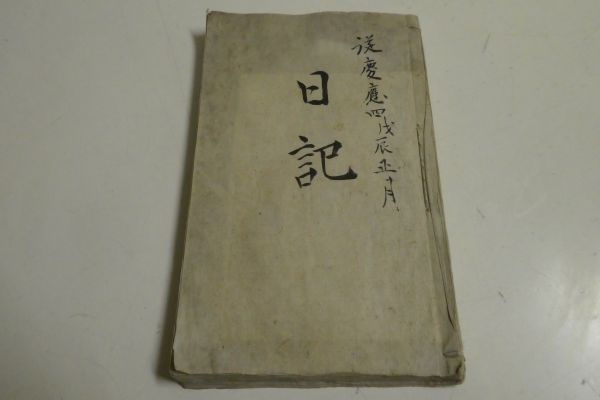 従慶應四戊辰正月
日記